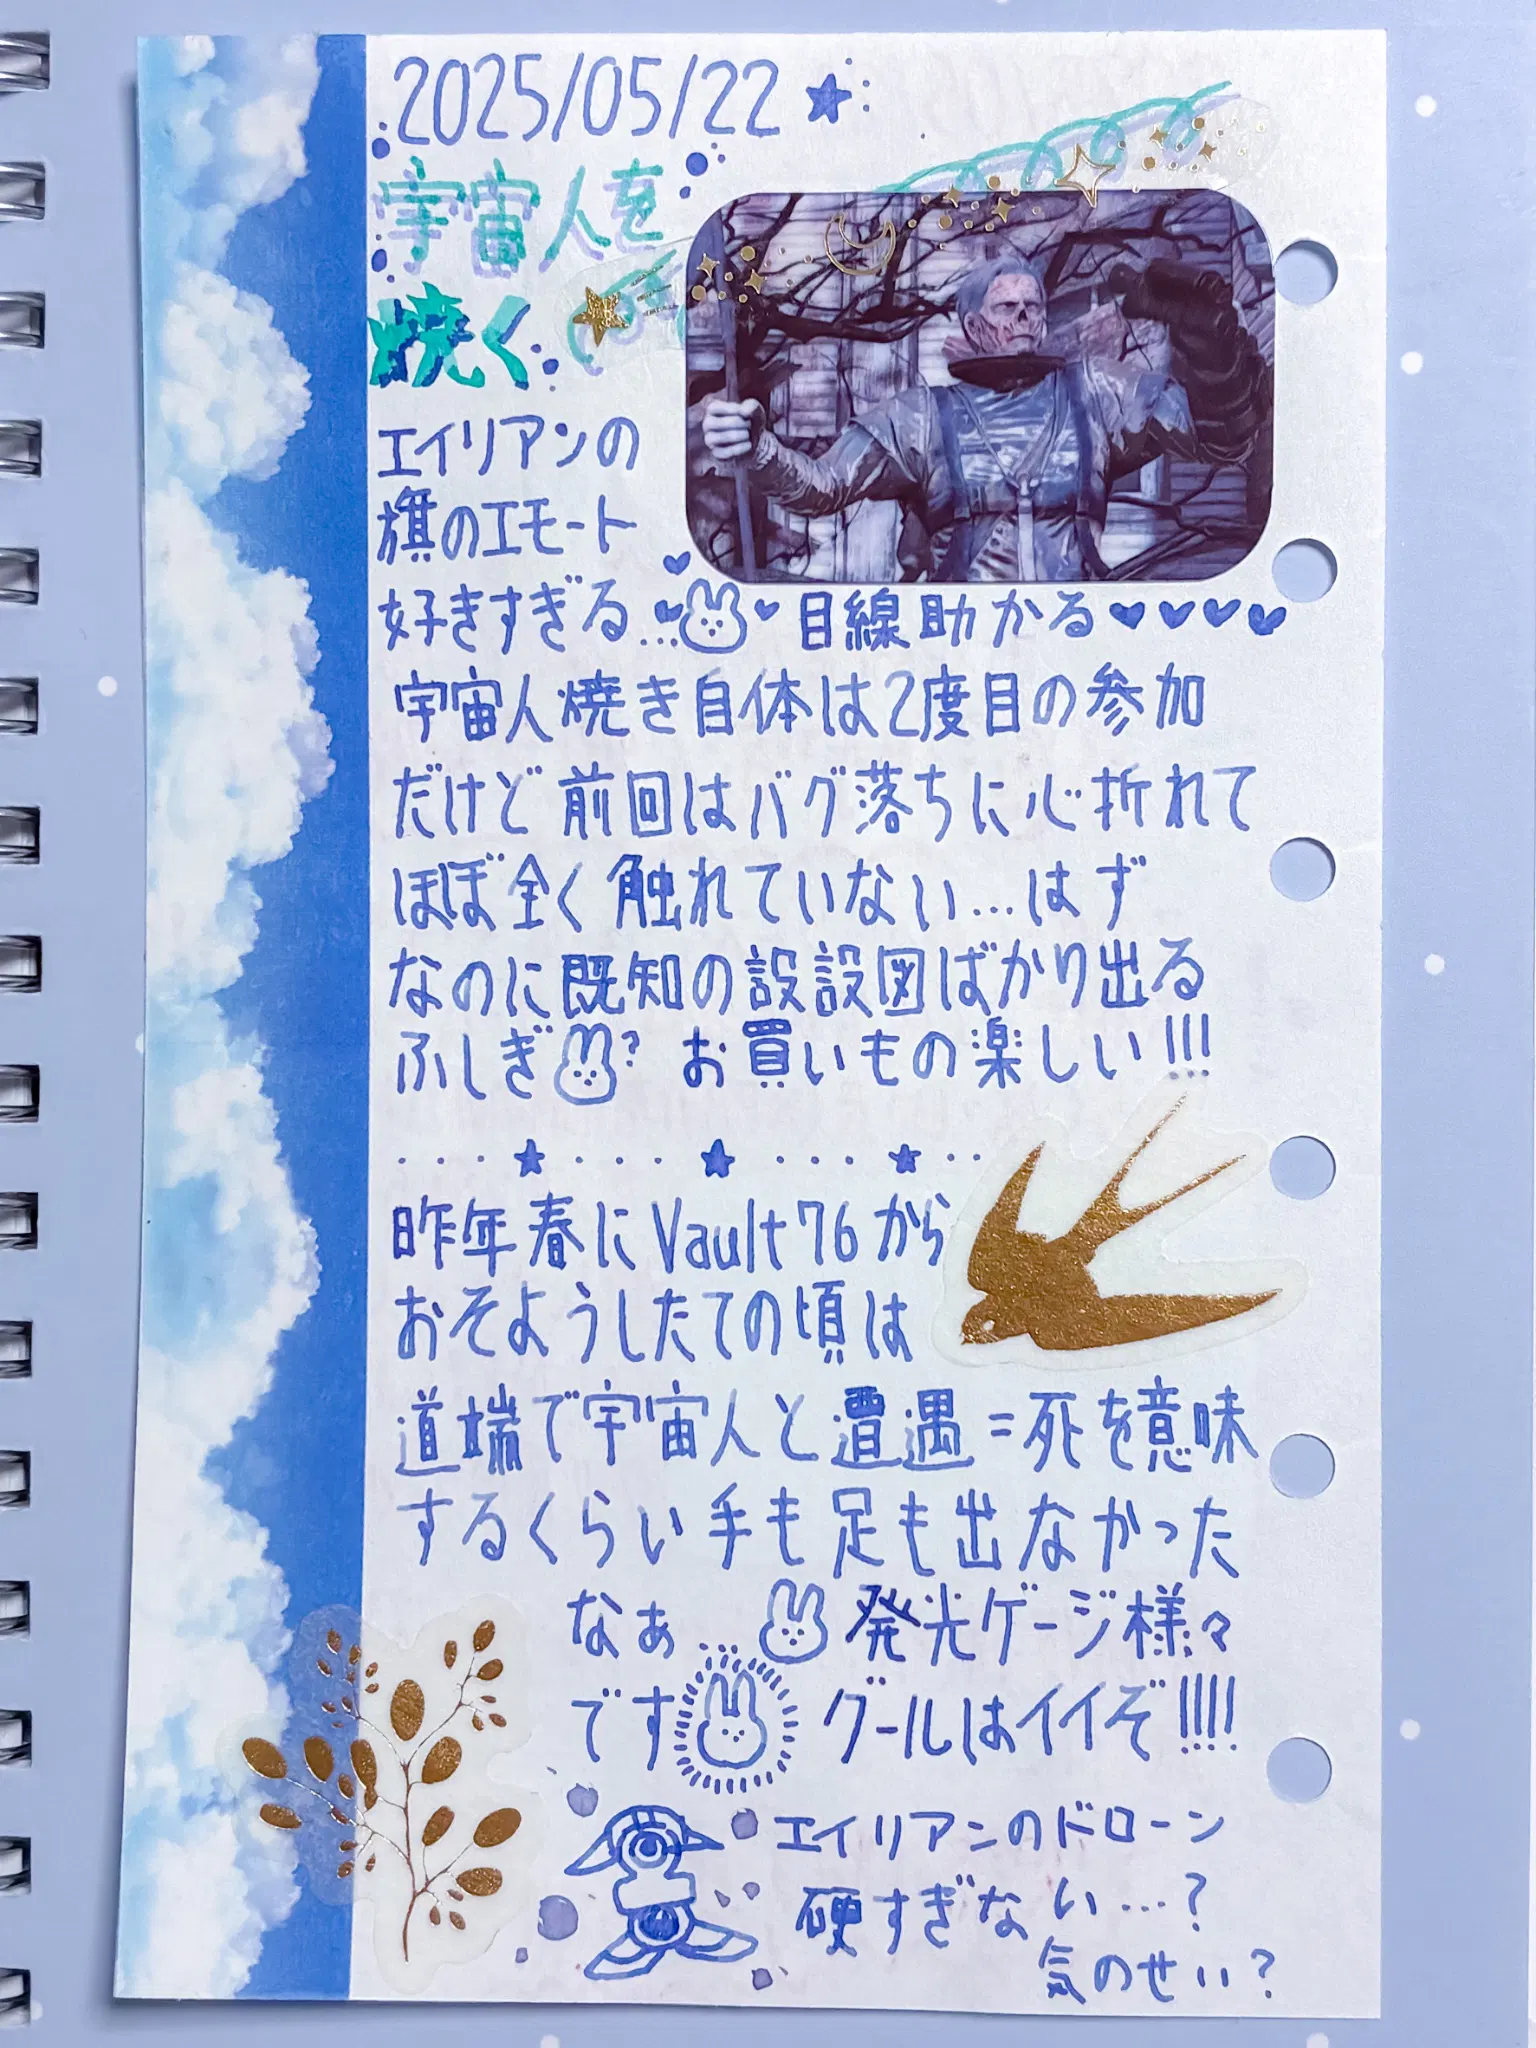 2025/05/22
宇宙人を
焼く
エイリアンの
旗のエモート
好きすぎる… 目線助かる
宇宙人焼き自体は2度目の参加
だけど前回はバグ落ちに心折れて
ほぼ全く触れていない…はず
なのに既知の設設図ばかり出る
ふしぎ? お買いもの楽しい!!!
昨年春にVault76から
おそようしたての頃は
道端で宇宙人と遭遇=死を意味
するくらい手も足も出なかった
なぁ 発光ゲージ様々
です グールはイイぞ!!!!
エイリアンのドローン
硬すぎない…?
気のせい?